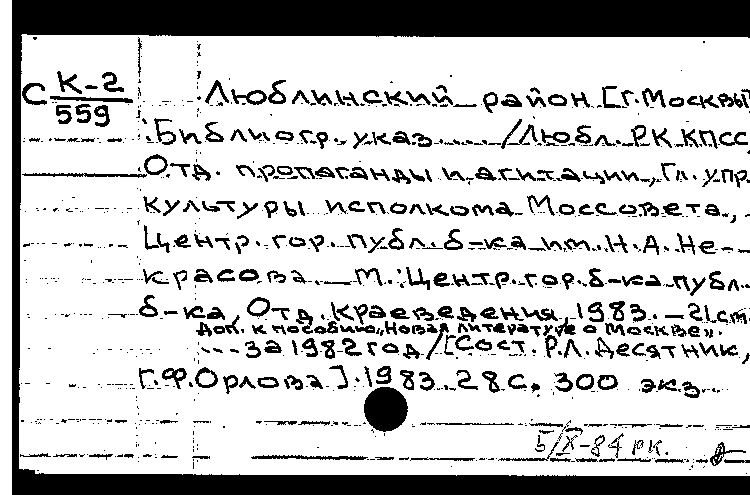 С К-2
559
Люблинский район [г. Москвы]
Библиогр. указ. ... / Любл. РК КПСС,
Отд. пропаганды и агитации, Гл. упр.
культуры исполкома Моссовета,
Центр. гор. публ. б-ка им. Н. А. Не-
красова. — М.: Центр. гор. б-ка публ.
б-ка, Отд. краеведения, 1983. — 21 см
Доп. к пособию „Новая литература о Москве".
... за 1982 год / [Сост. Р. Л. Десятник,
Г. Ф. Орлова]. 1983. 28 с. 300 экз.
5/X-84 рк.